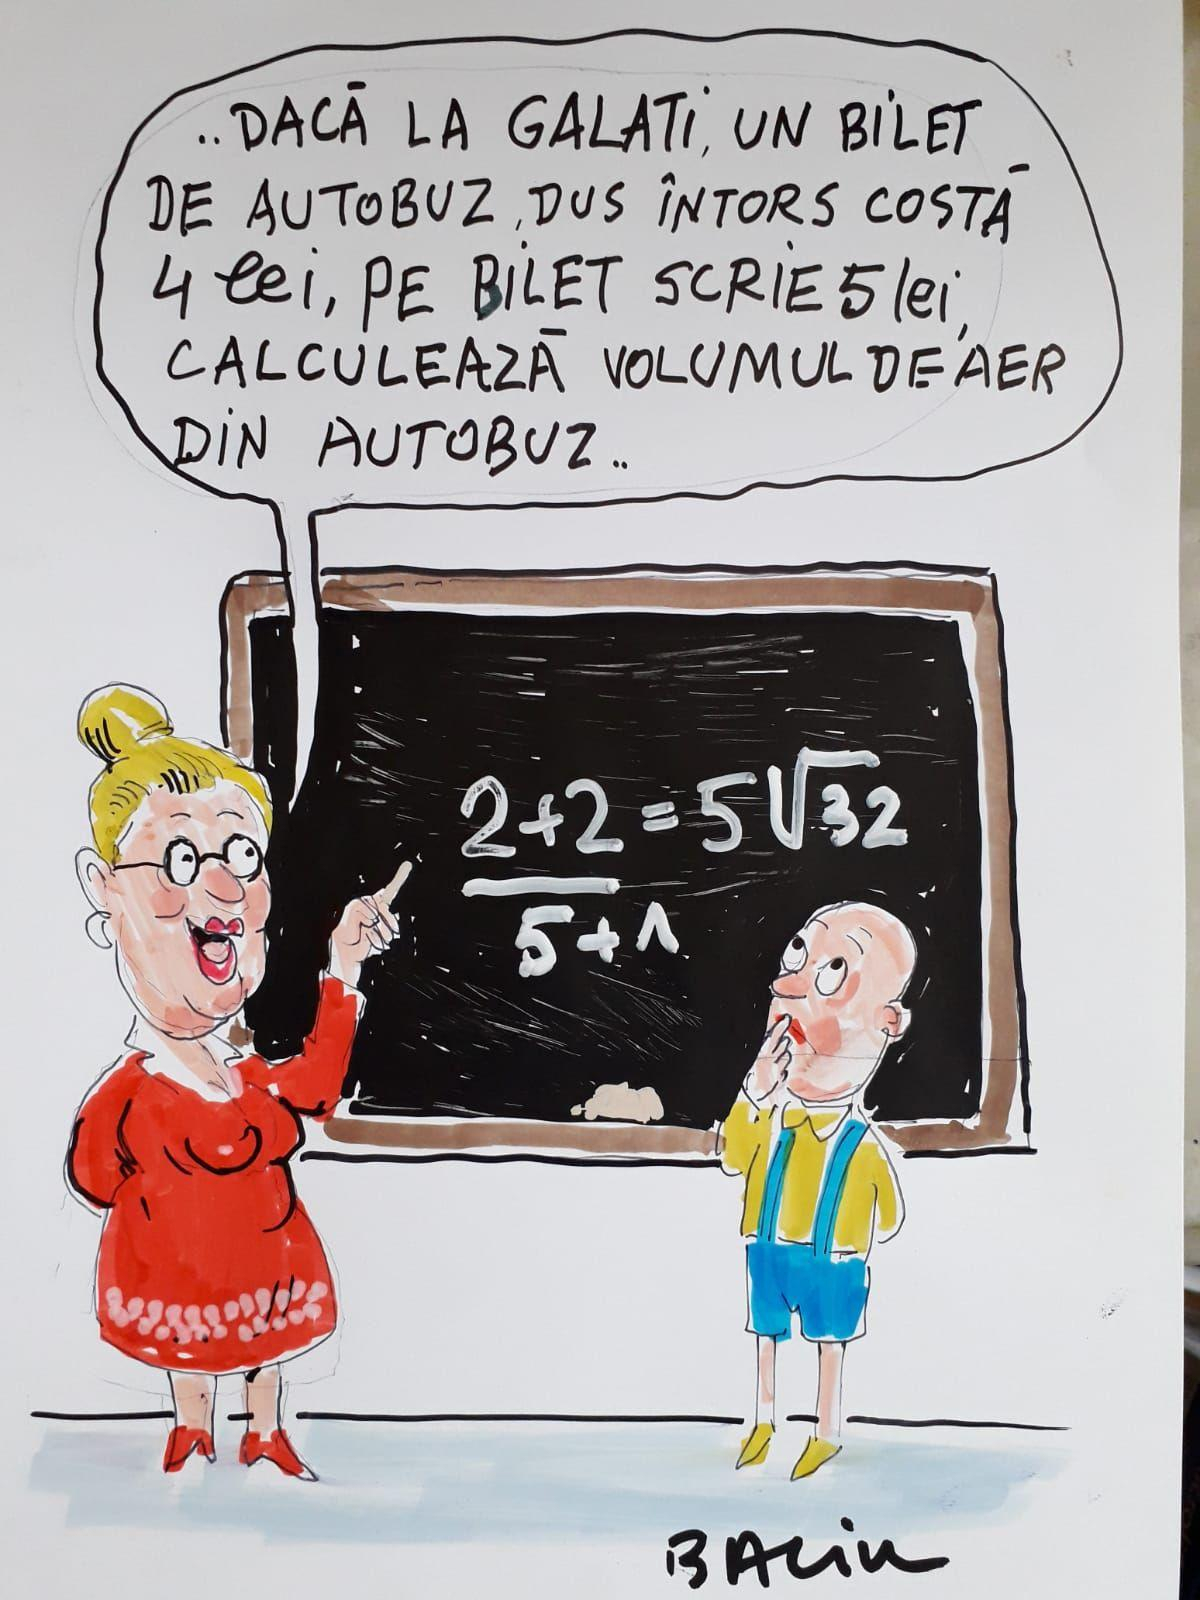 ..DACĀ LA GALATi, UN BiLET
DE AUTOBUZ, DUS ÎNTORS COSTĀ
4 lei, PE BiLET SCRIE 5 lei,
CALCULEAZĀ VOLUMUL DE AER
DiN AUTOBUZ..
2+2 = 5√32
5+1
BACiu